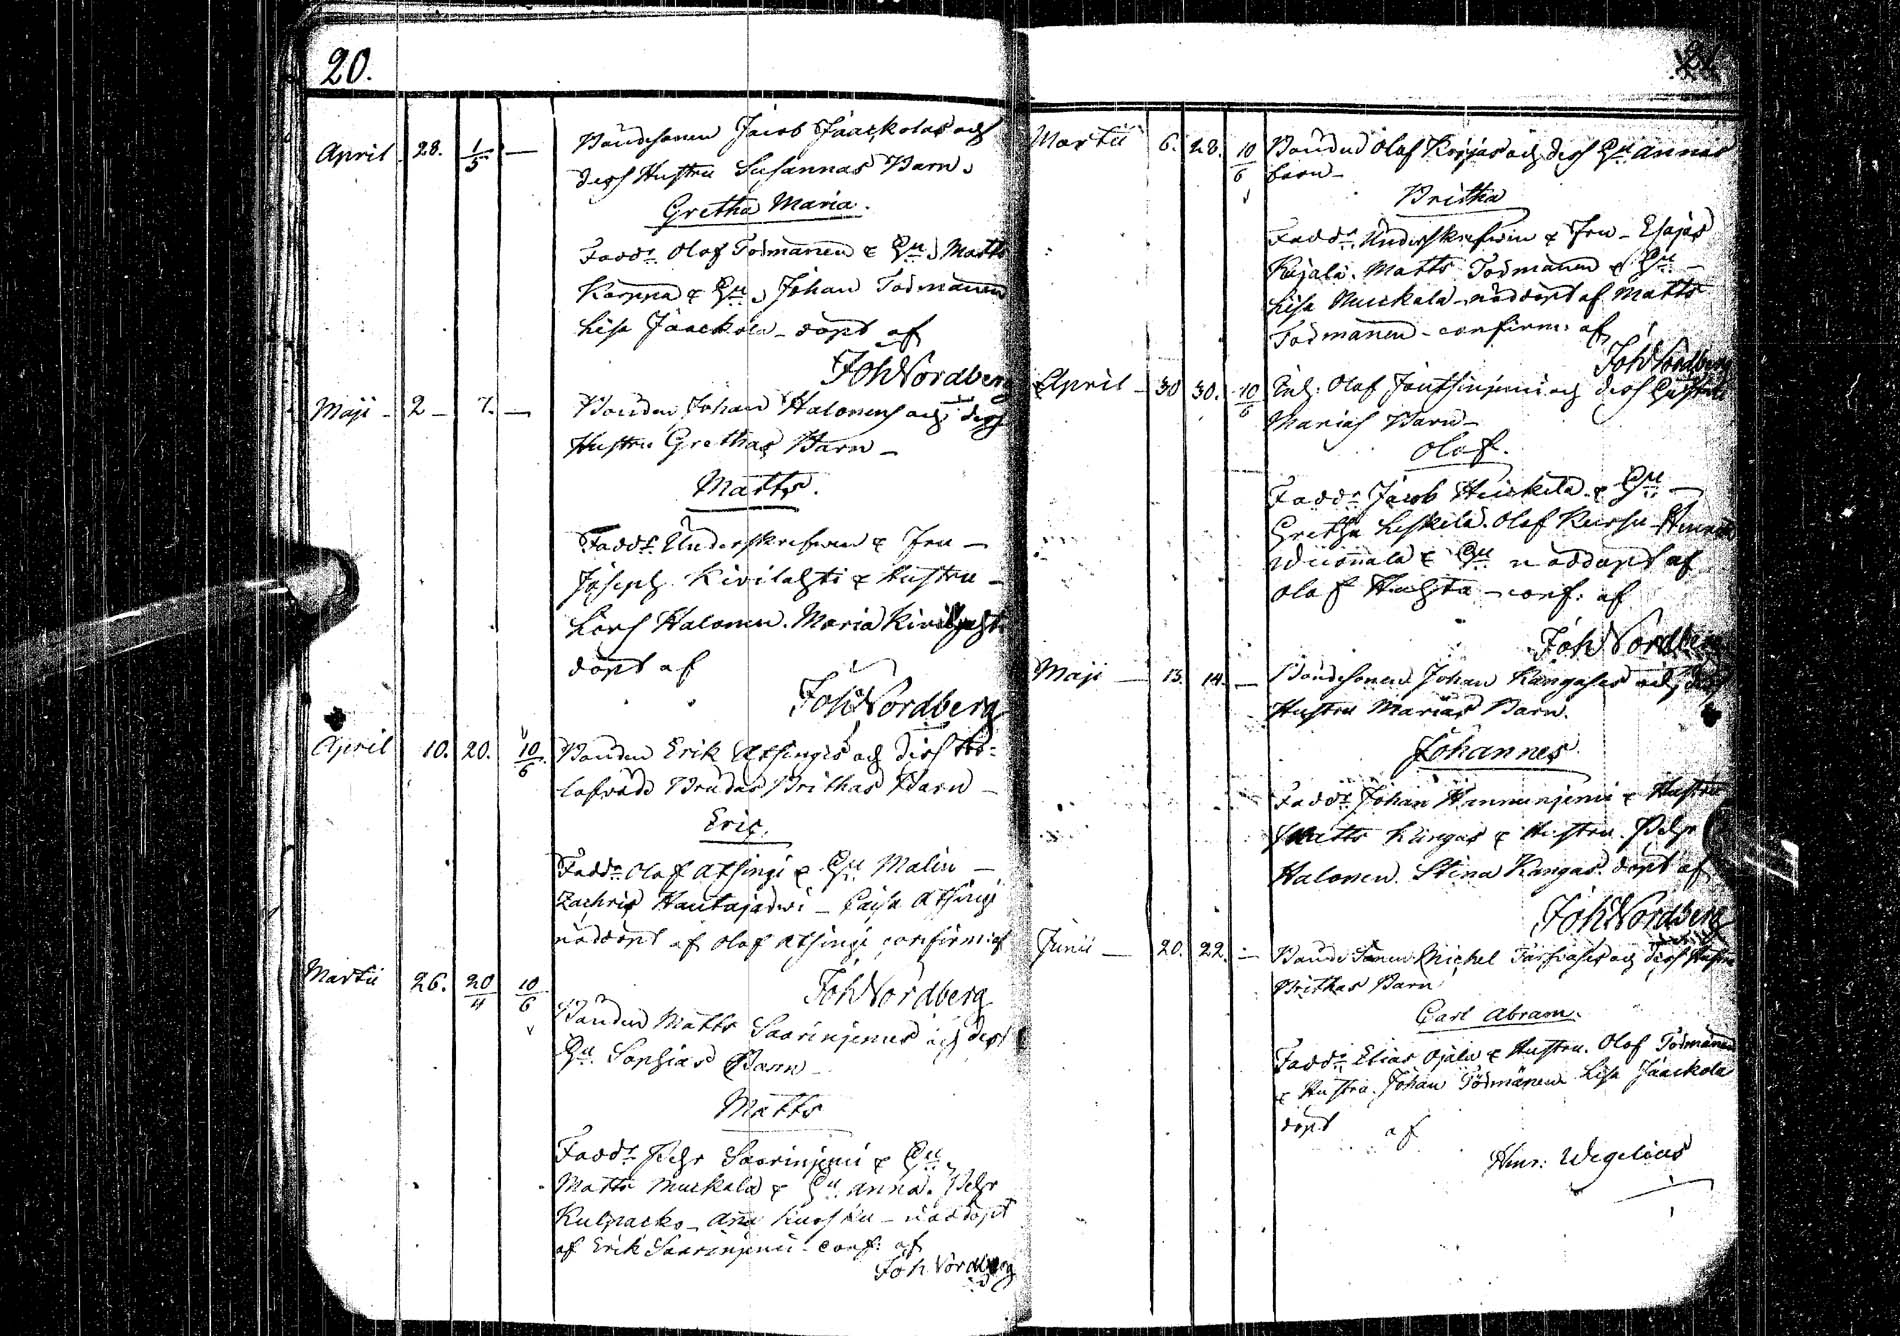 20.
April 28. 1/5 — Bondesonen Jacob Jaackolas och
dess Hustru Susannas Barn,
Gretha Maria.
Fadd: Olof Todmanen & Hu, Matts
Karppa & Hu, Johan Todmanen
Lisa Jaackola - döpt af
Joh Nordberg
Maji - 2 - 7. — Bonden Johan Halonens och dess
Hustru Grethas Barn -
Matts.
Fadd: Underskrefven & Fru -
Joseph Kivilahti & Hustru -
Lars Halonen. Maria Kivilahti
döpt af
Joh Nordberg
April 10. 20. 10/6 Bonden Erik Atsingis och dess
lofvade Brudas Brithas Barn -
Eric.
Fadd: Olof Atsingi & Hu Malin -
Zachris Hautajarwi - Caisa Atsingi
nöddöpt af Olof Atsingi, confirm: af
Joh Nordberg
Martii 26. 20/4 10/6 Bonden Matts Saarinjemis och dess
Hu Sophias Barn -
Matts
Fadd: Pehr Saarinjemi & Hu
Matts Murkala & Hu Anna. Pehr
Kulpacko - Ana Kurssu - nöddöpt
af Erik Saarinjemi - conf: af
Joh Nordberg
21
Martii 6. 28. 10/6 Bonden Olof Korjas och dess Hu Annas
barn -
Britha
Fadd: Underskrefven & Fru - Esajas
Kujala. Matts Todmanen & Hu -
Lisa Murkala - nöddöpt af Matts
Todmanen - confirm: af
Joh Nordberg
April - 30 30. 10/6 Inh: Olof och dess Hustru
Marias Barn -
Olof.
Fadd: Jacob Heickela & Hu -
Gretha Leskela. Olof Kurssu -
& Hu nöddöpt af
Olof Huhta - conf: af
Joh Nordberg
Maji — 13. 14. — Bondesonen Johan Kangases och dess
Hustru Marias Barn.
Johannes
Fadd: Johan Hannunjemi & Hustru
Matts Kangas & Hustru. Pehr
Halonen. Stina Kangas. döpt af
Joh Nordberg
Junii — 20. 22. - Bonde Sonen Michel och dess Hustru
Brithas Barn
Carl Abram.
Fadd: Elias Ojala & Hustru. Olof Todmanen
& Hustru. Johan Todmänen Lisa Jaackola
döpt af
Henr: Wegelius